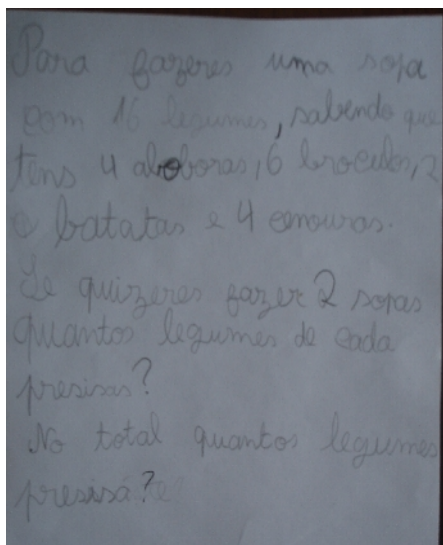 Para fazeres uma sopa
com 16 legumes, sabendo que
tens 4 aboboras, 6 broculos, 2
batatas e 4 cenouras.
Se quizeres fazer 2 sopas
quantos legumes de cada
presisas?
No total quantos legumes
presisa?